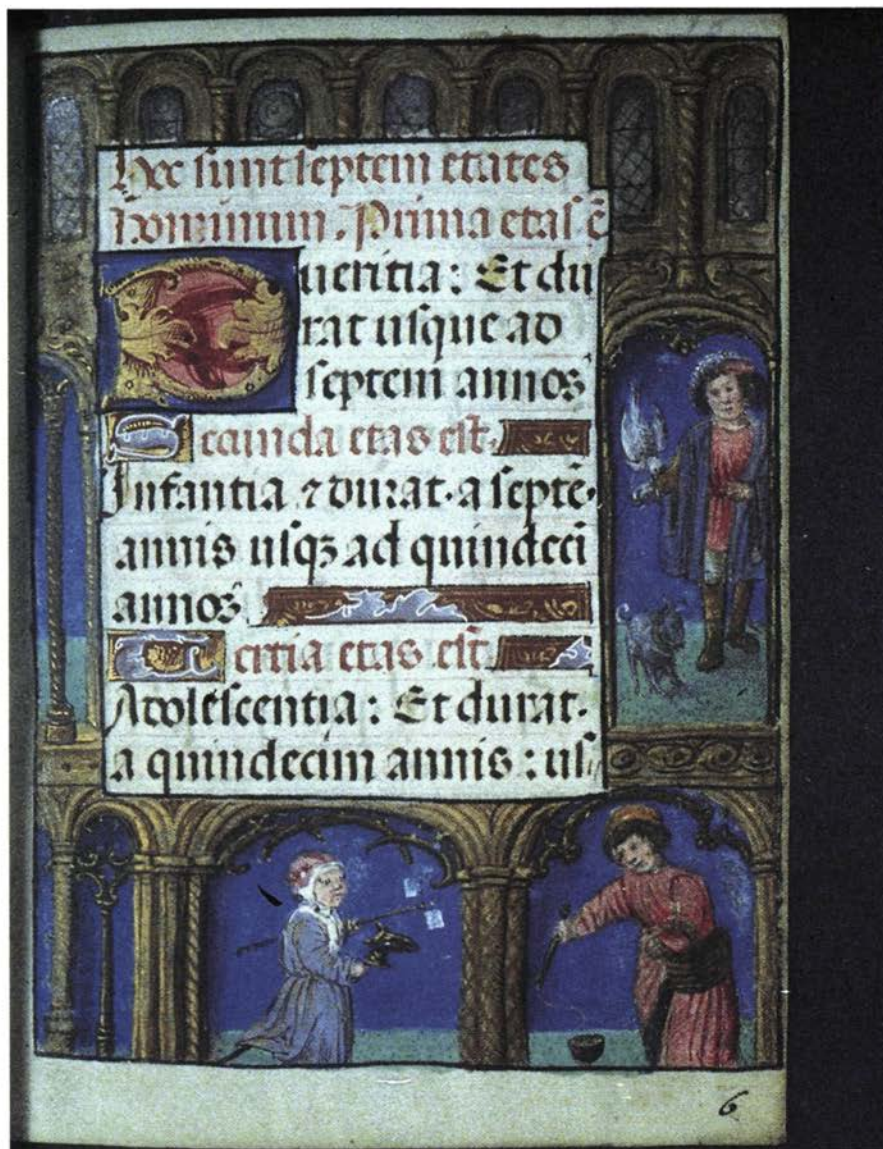 Hec sunt septem etates
hominum. Prima etas ē
Pueritia: Et du
rat usque ad
septem annos
Secunda etas est.
Infantia ⁊ durat. a septē.
annis usqꝫ ad quindeci
annos
Tertia etas est.
Adolescentia: Et durat.
a quindecim annis: us
6